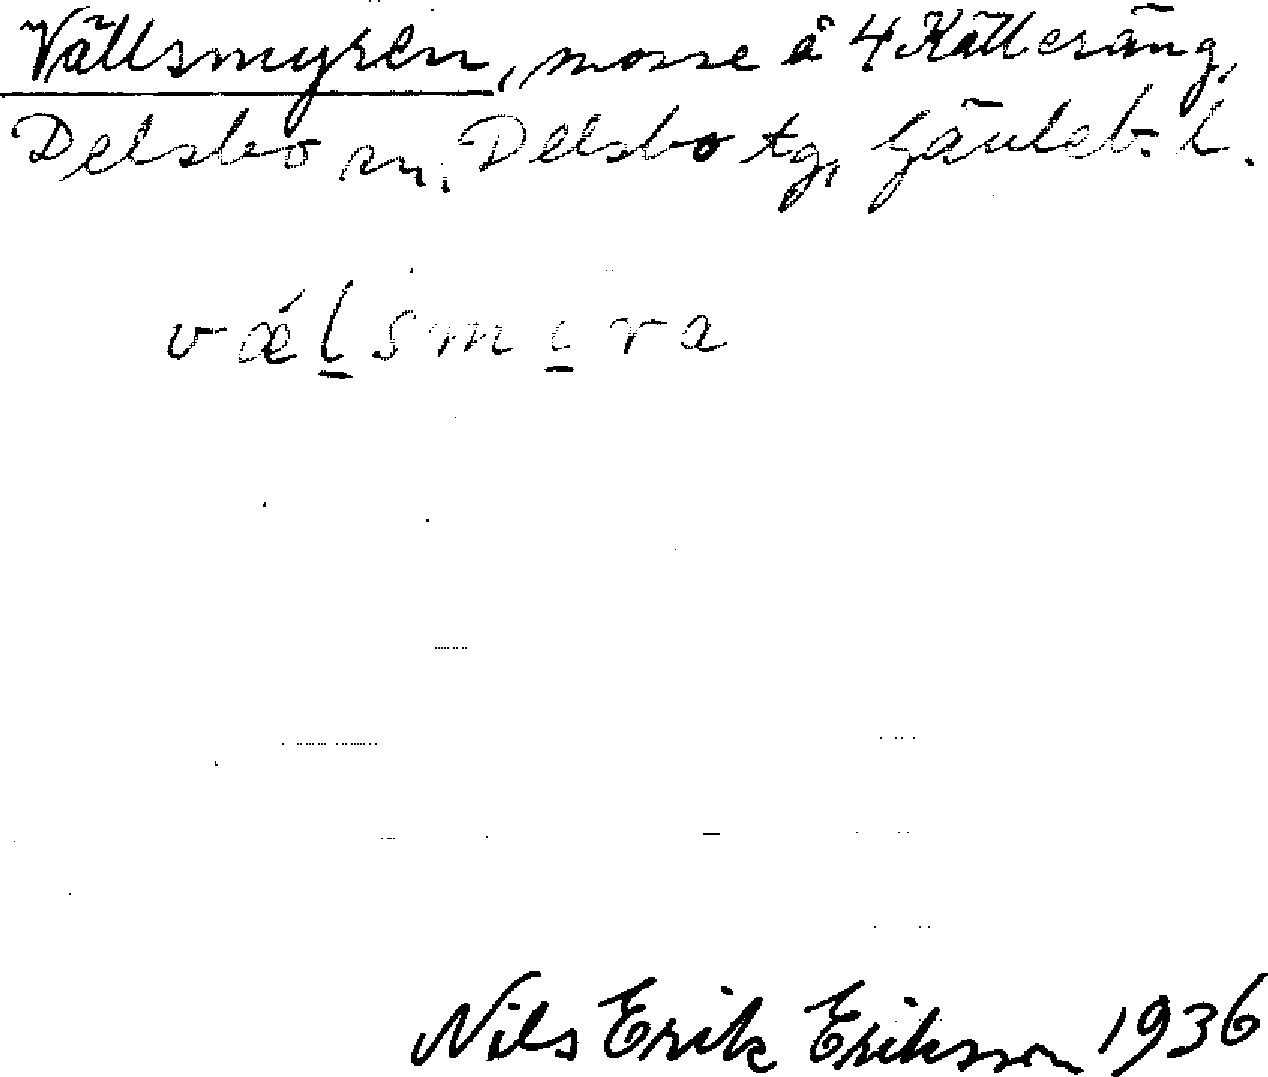 Vällsmyren, mosse å 4 Källeräng,
Delsbo sn, Delsbo tg, Gävleb. l.
vǽlsmira
Nils Erik Eriksson 1936